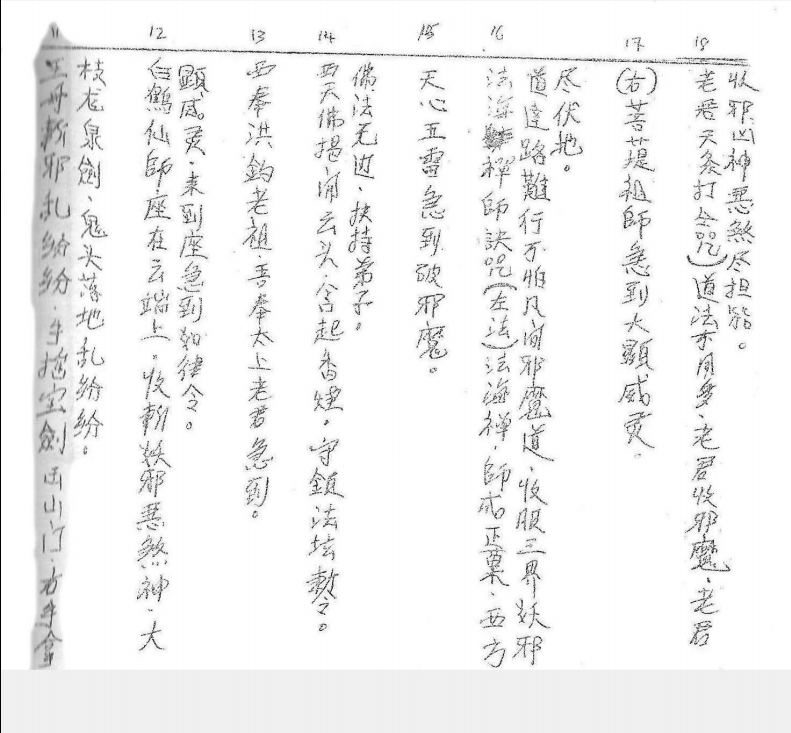 11
王母斬邪乱紛紛、手拖宝劍出山门、右手拿
枝龙泉劍、鬼头落地乱紛紛。
12
白鶴仙師座在云端上、收斬妖邪惡煞神、大
顕威灵、来到座急到如律令。
13
西奉洪鈞老祖、吾奉太上老君急到。
14
西天佛揭、開云头、含起香煙。守鎮法坛敕令。
佛法无边、扶持弟子。
15
天心五雷急到破邪魔。
16
法海禅師訣咒(左法)法海禅、師成正菓、西方
道達路難行不怕凡间邪魔道、收服三界妖邪
尽伏地。
17
(右)菩提祖師急到大顕威灵、
18
老君天条打令咒)道法亦用多、老君收邪魔、老君
收邪凶神惡煞尽担能。